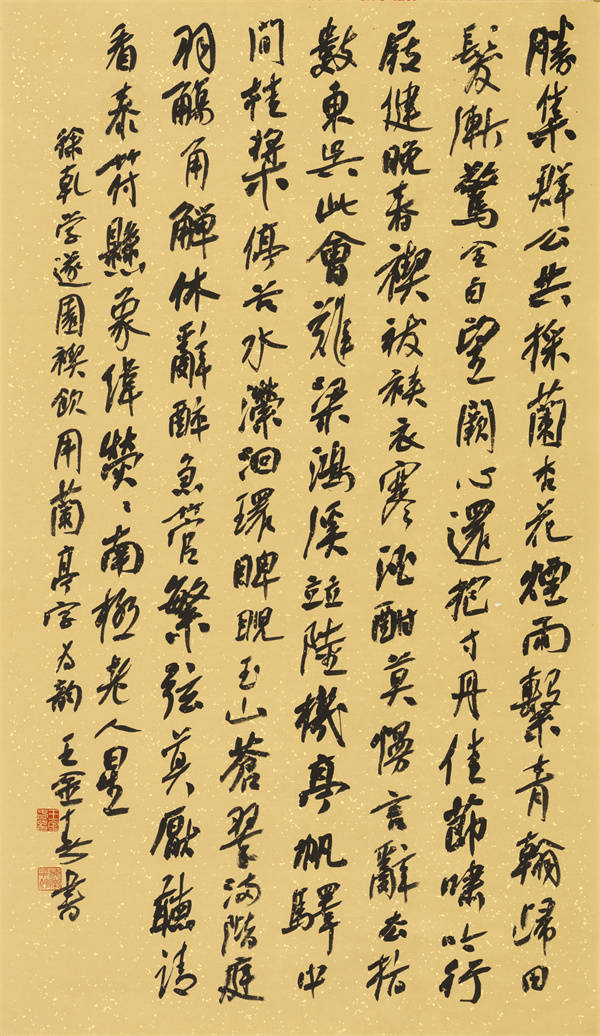 勝集群公共採蘭杏花煙雨繫青翰歸田
髮漸驚全白望闕心還抱寸丹佳節嘯吟行
屐健晚春禊祓裌衣寒酒酣莫慢言辭去指
數東吳此會難梁鴻溪並陸機亭帆驛中
間桂槳停苕水瀠洄環睥睨玉山蒼翠滿階庭
羽觴角觶休辭醉急管繁弦莫厭聽請
看泰符懸象緯熒〻南極老人星
徐乾学遂園禊飲用蘭亭字为韵 王金春書